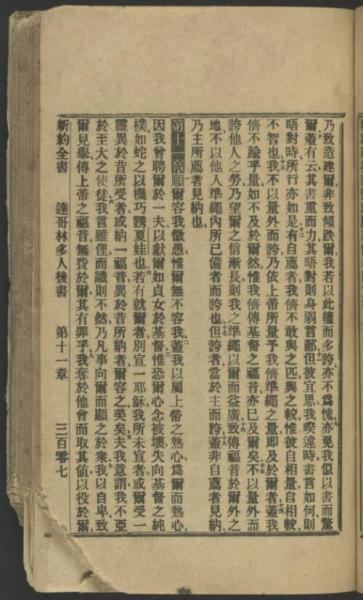 乃致造建爾非致傾跌爾我若以此權而多誇亦不爲愧亦免我似以書而驚
爾蓋有云其書重而力其晤對則身弱言鄙但彼宜思我暌違時書言如何則
晤對時所行亦如是有自薦者我儕不敢與之匹與之較惟彼自相量自相較
不智也我不以量外而誇乃依上帝所量予我儕準繩之量即及於爾者蓋我
儕不踰乎量如不及於爾然惟我儕傳基督之福音亦已及爾矣不以量外而
誇他人之勞乃望爾之信漸長則我之準繩以爾而益廣致傳福音於爾外之
地不以他人準繩內所已備者而誇也但誇者當於主而誇蓋非自薦者見納
乃主所薦者見納也
第十一章願爾容我微愚惟爾無不容我蓋我以屬上帝之熱心爲爾而熱心
因我曾聘爾於一夫以獻爾如貞女於基督惟恐爾心或被壞失向基督之純
樸如蛇之以機巧誘夏娃也若有就爾者別宣一耶穌我所未宣者或爾受一
靈異於昔所受者或納一福音異於昔所納者爾容之美矣夫我意謂我不亞
於至大之使徒我言雖俚而識則不然乃凡事向爾而顯之於衆我以自卑致
爾見舉傳上帝之福音無費於爾其有罪乎我奪於他會而取其值以役於爾
新約全書 達哥林多人後書 第十一章 三百零七